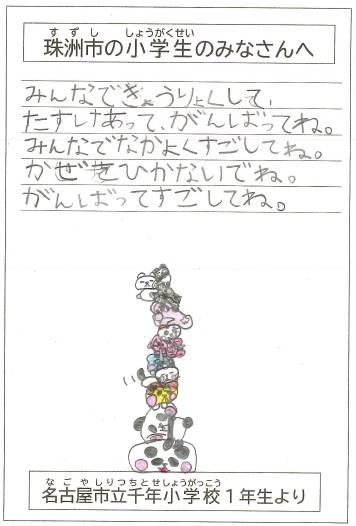 すずし しょうがくせい
珠洲市の小学生のみなさんへ
みんなできょうりょくして、
たすけあって、がんばってね。
みんなでなかよくすごしてね。
かぜをひかないでね。
がんばってすごしてね。
なごやしりつちとせしょうがっこう
名古屋市立千年小学校1年生より